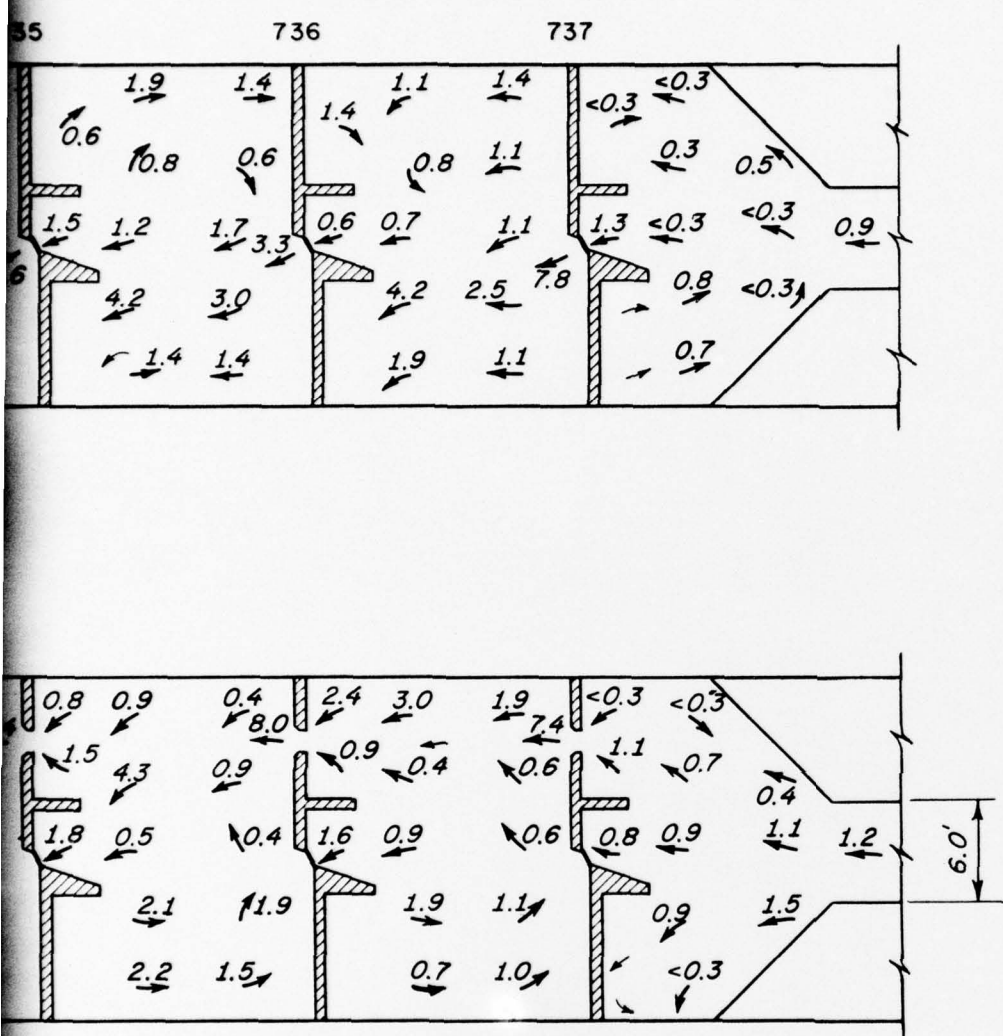 35 736 737
1.9 1.4 1.1 1.4 <0.3
1.4 <0.3
0.6
0.8 0.6 0.8 1.1 0.3 0.5
1.5 1.2 1.7 0.6 0.7 1.1 1.3 <0.3 <0.3 0.9
3.3
6 7.8
4.2 3.0 4.2 2.5 0.8 <0.3
1.4 1.4 1.9 1.1 0.7
0.8 0.9 0.4 2.4 3.0 1.9 <0.3 <0.3
8.0 7.4
1.5 0.9 1.1
4.3 0.9 0.4 0.6 0.7
0.4
1.8 0.5 0.4 1.6 0.9 0.6 0.8 0.9 1.1 1.2 6.0'
2.1 1.9 1.9 1.1 0.9 1.5
2.2 1.5 0.7 1.0 <0.3